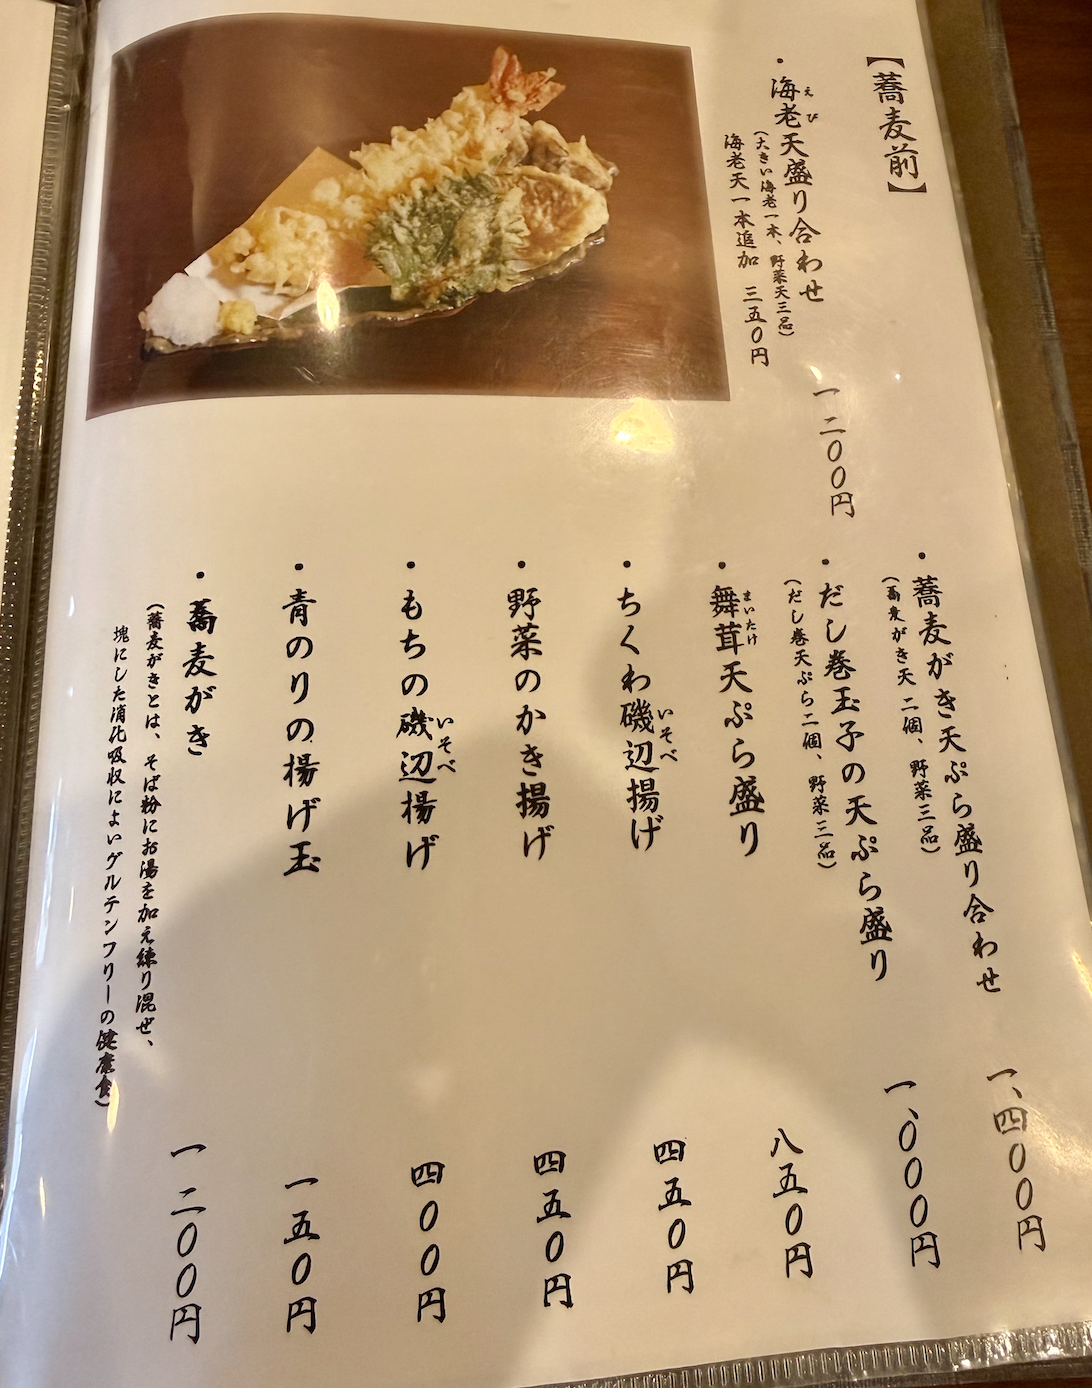 【蕎麦前】
・海老天盛り合わせ
えび
一二〇〇円
(大きい海老一本、野菜天三品)
海老天一本追加 三五〇円
・蕎麦がき天ぷら盛り合わせ
一、四〇〇円
(蕎麦がき天 二個、野菜三品)
・だし巻玉子の天ぷら盛り
一、〇〇〇円
(だし巻天ぷら二個、野菜三品)
・舞茸天ぷら盛り
まいたけ
八五〇円
・ちくわ磯辺揚げ
いそべ
四五〇円
・野菜のかき揚げ
四五〇円
・もちの磯辺揚げ
いそべ
四〇〇円
・青のりの揚げ玉
一五〇円
・蕎麦がき
一二〇〇円
(蕎麦がきとは、そば粉にお湯を加え練り混ぜ、
塊にした消化吸収によいグルテンフリーの健康食)